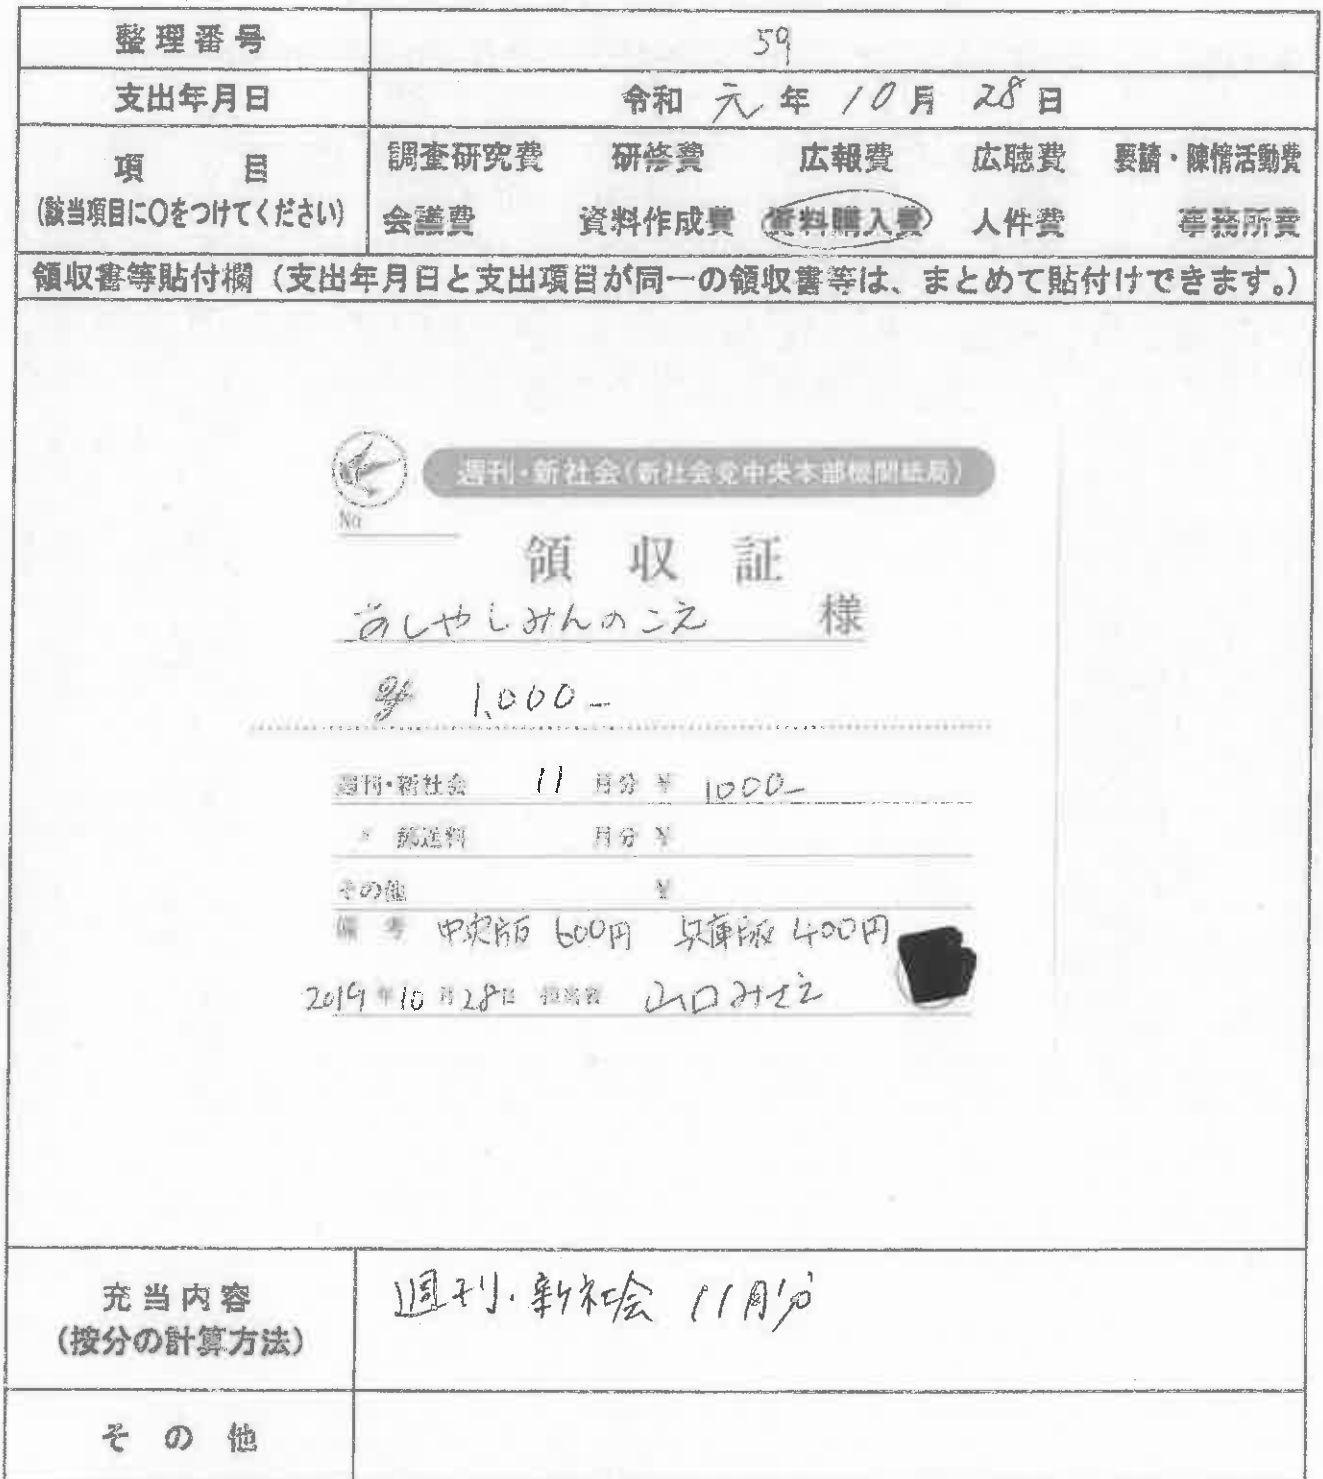 整理番号 59
支出年月日 令和 元 年 10 月 28 日
項目 調査研究費 研修費 広報費 広聴費 要請・陳情活動費
(該当項目に○をつけてください) 会議費 資料作成費 資料購入費 人件費 事務所費
領収書等貼付欄（支出年月日と支出項目が同一の領収書等は、まとめて貼付けできます。）
週刊・新社会(新社会党中央本部機関紙局)
No
領収証
あしやしみんのこえ 様
¥ 1,000-
週刊・新社会 11 月分 ¥ 1000-
〃 郵送料 月分 ¥
その他 ¥
備考 中央版 600円 兵庫版 400円
2019年10月28日 担当者 山口みさえ
充当内容 週刊・新社会 11月分
(按分の計算方法)
その他